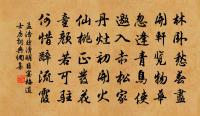 林卧愁春盡
開軒覽物華
忽逢青鳥使
邀入赤松家
丹灶初開火
仙桃正落花
童顏若可駐
何惜醉流霞
孟浩然清明日宴梅道
士房